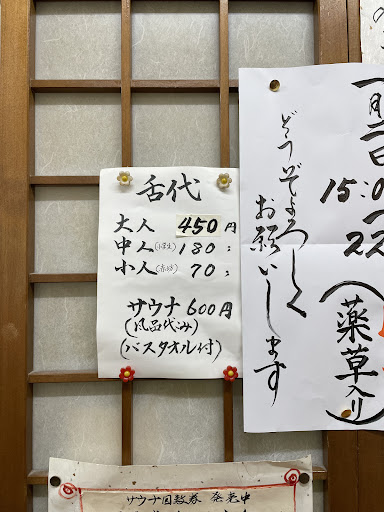 舌代
大人 450円
中人(小学生) 180〃
小人 70〃
サウナ 600円
(風呂代込み)
(バスタオル付)
一月二日
15:0
22
(薬草入り)
どうぞよろしく
お願いします
サウナ回数券 発売中